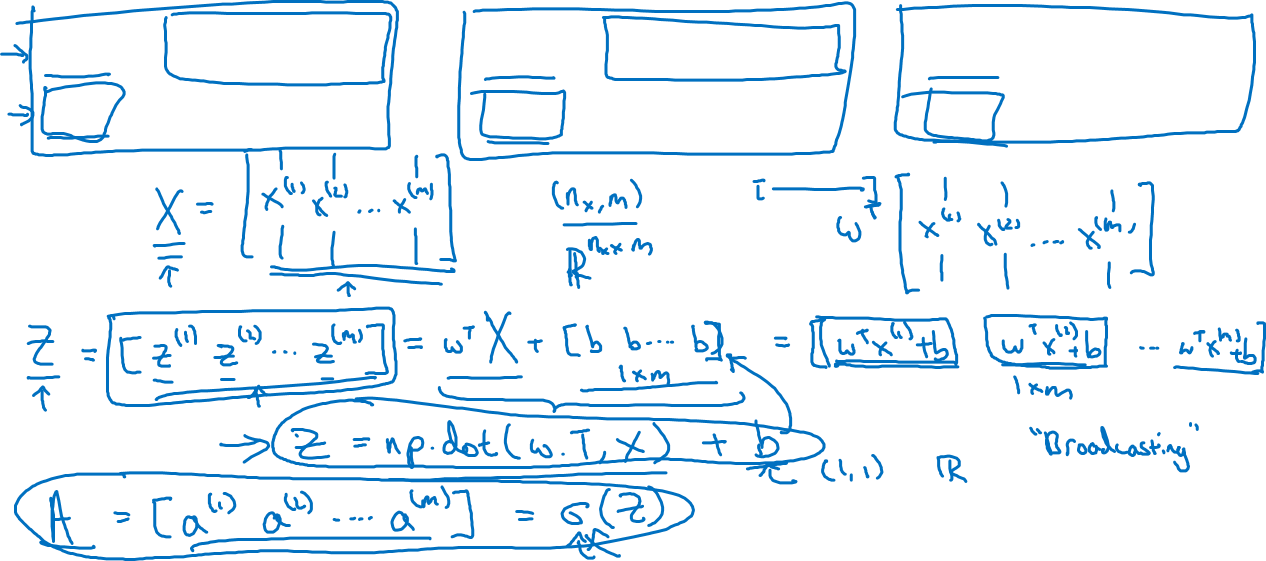 X = [x^(1) x^(2) ... x^(m)] (n_x, m) w^T [x^(1) x^(2) .... x^(m)]
ℝ^(n_x × m)
Z = [z^(1) z^(2) ... z^(m)] = w^T X + [b b ... b] = [w^T x^(1) + b w^T x^(2) + b ... w^T x^(m) + b]
1×m 1×m
Z = np.dot(w.T, X) + b "Broadcasting"
(1,1) ℝ
A = [a^(1) a^(2) .... a^(m)] = σ(Z)